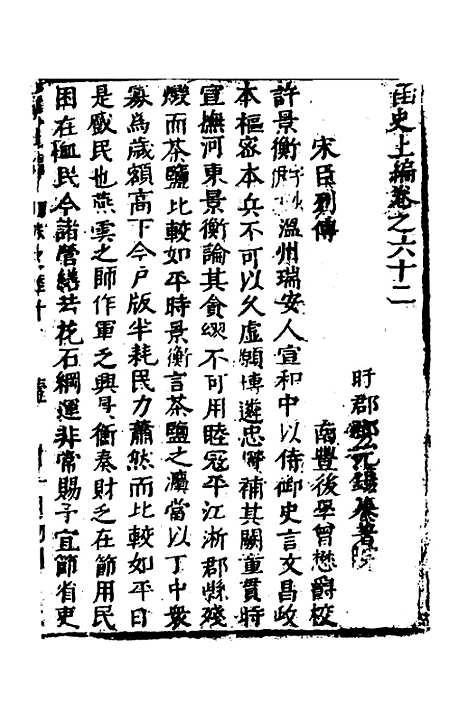 函史上編卷之六十二
盱郡鄧元錫纂著
南豐後學曾懋爵校
宋臣列傳
許景衡溫州瑞安人宣和中以侍御史言文昌政
本樞密本兵不可以久虛願博遴忠賢補其闕童貫時
宣撫河東景衡論其貪繆不可用睦冦平江浙郡縣殘
燬而茶鹽比較如平時景衡言茶鹽之灋當以丁中衆
寡為歲額高下今戶版半耗民力蕭然而比較如平日
是厲民也燕雲之師作軍乏興景衡奏財乏在節用民
困在恤民今諸營繕共花石綱運非常賜予宜節省吏